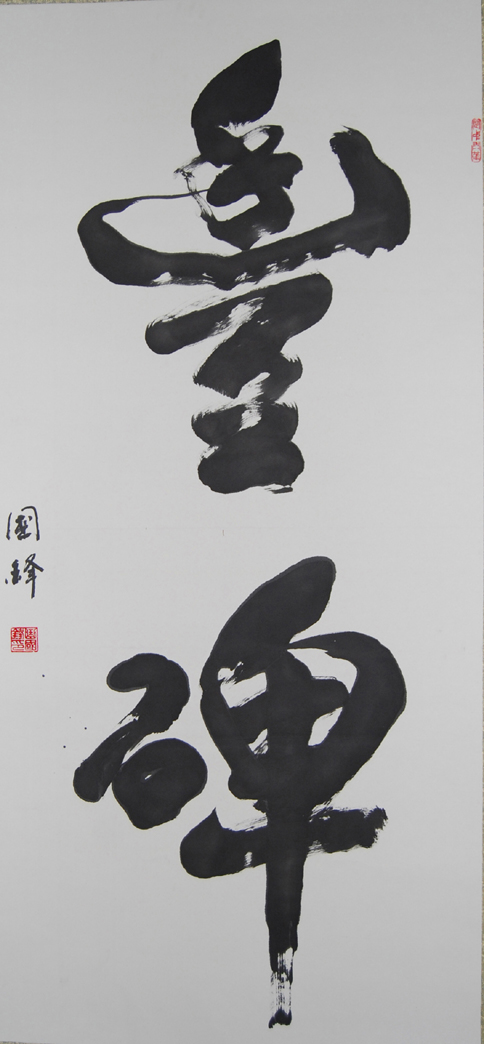 豐碑
國鋒